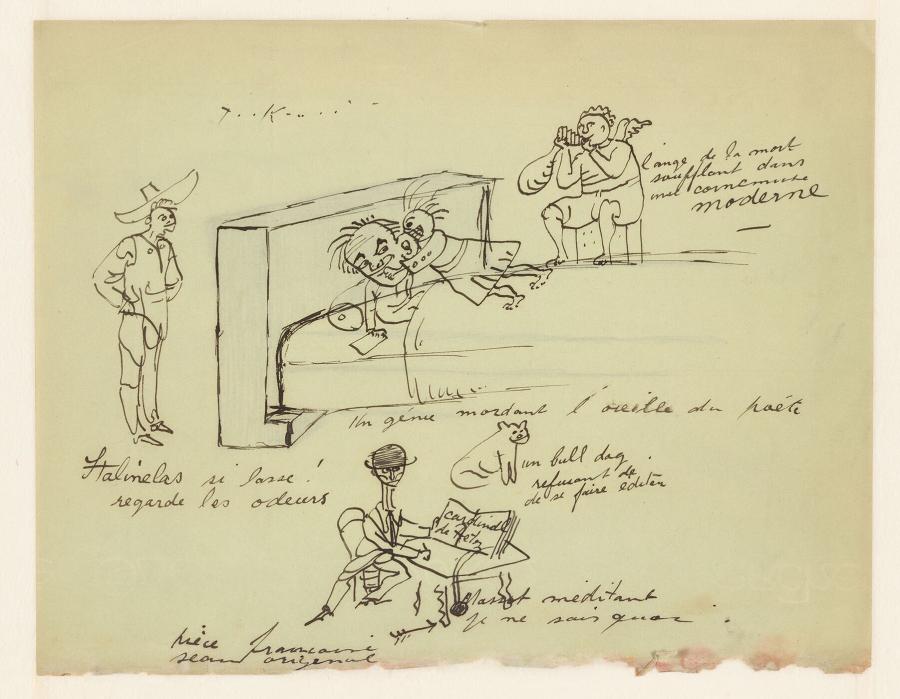 l'ange de la mort
soufflant dans
une cornemuse
moderne
Un génie mordant l'oreille du poéte
si lasse !
regarde les odeurs
un bull dog
refusant de
de se faire éditer
cardinal
de Retz
méditant
je ne sais quoi .
pièce francaise